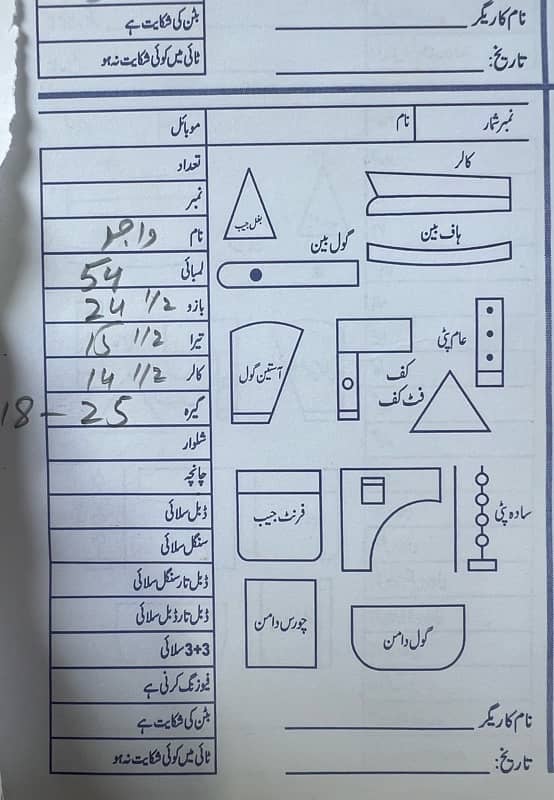 نام کاریگر
بٹن کی شکایت ہے
تاریخ:
ٹائی میں کوئی شکایت نہ ہو
نمبر شمار
نام
موبائل
تعداد
نمبر
نام واجد
لمبائی 54
بازو 24 1/2
تیرا 15 1/2
کالر 14 1/2
گیرہ 25 - 18
شلوار
چانچہ
ڈبل سلائی
سنگل سلائی
ڈبل تار سنگل سلائی
ڈبل تار ڈبل سلائی
3+3 سلائی
فیوزنگ کرنی ہے
بٹن کی شکایت ہے
ٹائی میں کوئی شکایت نہ ہو
کالر
بغل جیب
ہاف بین
گول بین
عام پٹی
کف
فٹ کف
آستین گول
سادہ پٹی
فرنٹ جیب
چورس دامن
گول دامن
نام کاریگر
تاریخ: